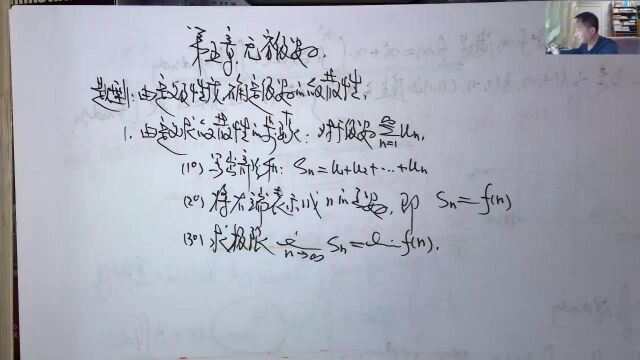 第五章 无穷级数.
题型1: 由定义性质确定级数的敛散性.
1. 由定义求敛散性的步骤: 对级数 ∑_{n=1}^{∞} u_n,
(1°) 写出部分和: S_n = u_1+u_2+⋯+u_n
(2°) 将右端表示成 n 的函数, 即 S_n = f(n)
(3°) 求极限 lim_{n→∞} S_n = lim f(n).